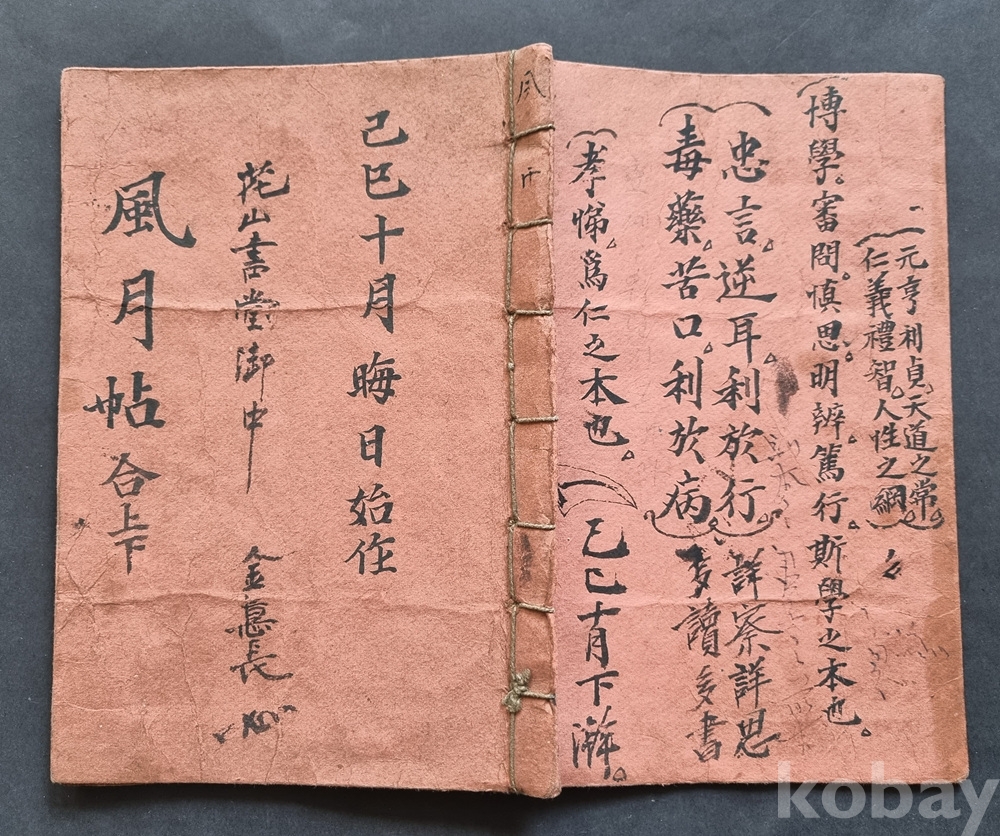 元亨利貞天道之常
仁義禮智人性之綱
博學審問愼思明辨篤行斯學之本也
忠言逆耳利於行詳察詳思
毒藥苦口利於病多讀多書
孝悌爲仁之本也
己巳十月下澣
風
己巳十月晦日始作
山書堂御中
金悳長
風月帖合上下
kobay